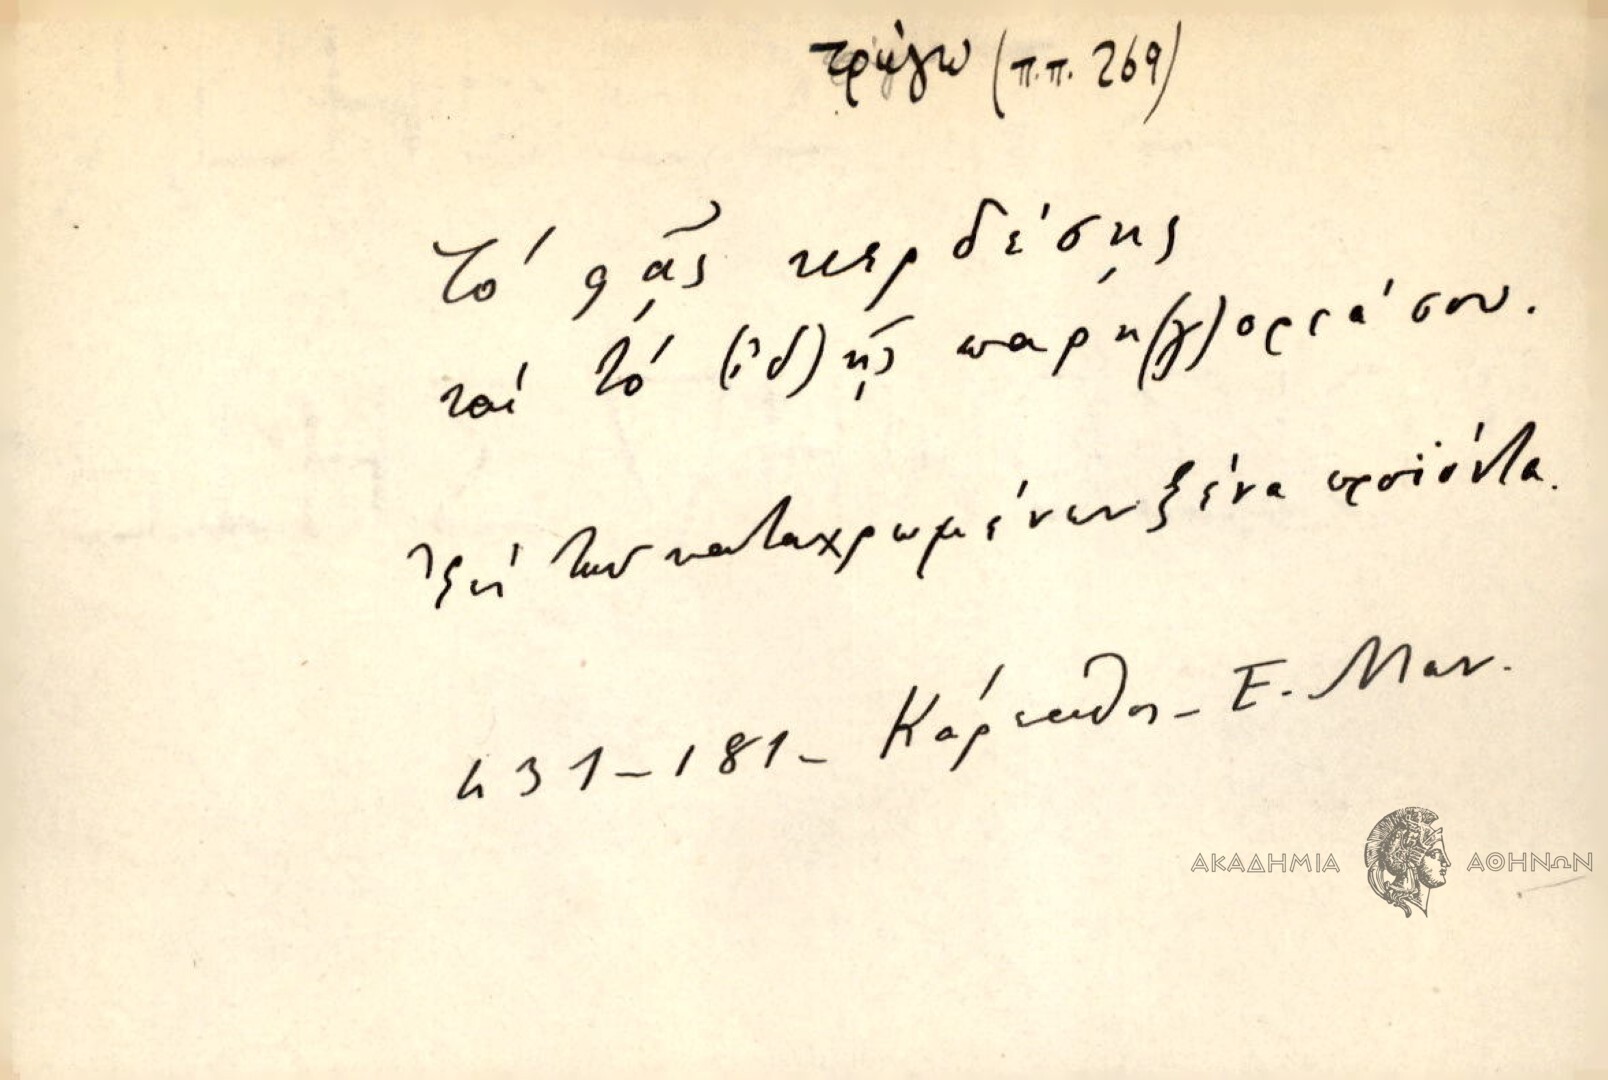 τρώγω (π.π. 269)
Τό φᾶς κερδέσῃς
καί τό (ἰδ)ῇς παρη(γ)οριά σου.
Ἐπί των καταχρωμένων ξένα προϊόντα.
431-181- Κάρπαθος - Ε. Μαν.
ΑΚΑΔΗΜΙΑ ΑΘΗΝΩΝ